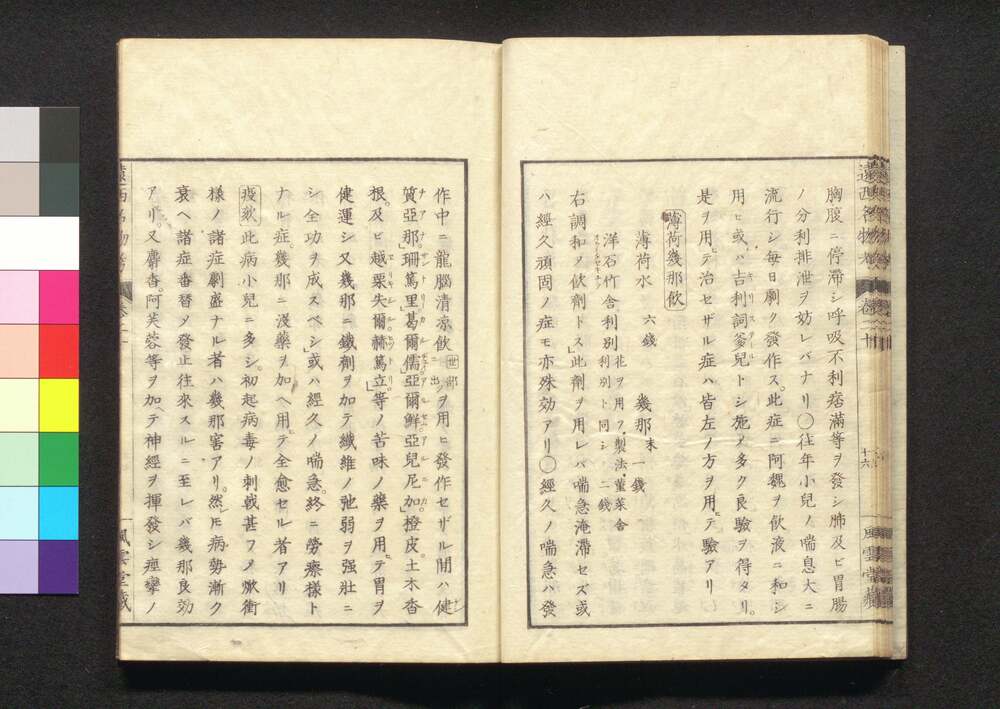 胸腹ニ停滞シ呼吸不利痞満等ヲ發シ肺及ビ胃腸
ノ分利排泄ヲ妨レバナリ○往年小兒ノ喘息大ニ
流行シ毎日劇ク發作ス。此症ニ阿魏ヲ飲液ニ和シ
用ヒ或ハ吉利詞爹兒トシ施メ多ク良驗ヲ得タリ。
キリステール
是ヲ用テ治セザル症ハ皆左ノ方ヲ用テ驗アリ
薄荷幾那飲
薄荷水 六錢 幾那末 一錢
洋石竹舍利別 花ヲ用フ、製法、菫菜舍
利別ト同シ 二錢
右調和メ飲劑トス」此劑ヲ用レバ喘急淹滞セズ或
ハ經久頑固ノ症モ亦殊効アリ○經久ノ喘急ハ發
十六
風雲堂藏
作中ニ龍腦清凉飲 世部ニ出 ヲ用ヒ發作セザル間ハ健
質亞那」珊篤里」葛爾儒亞爾鮮亞兒尼加」橙皮。土木香
根。及ビ越栗失爾赫篤立」等ノ苦味ノ藥ヲ用テ胃ヲ
健運シ又幾那ニ鐵劑ヲ加テ纖維ノ弛弱ヲ强壯ニ
シ全功ヲ成スベシ」或ハ經久ノ喘急。終ニ勞瘵様ト
ナル症。幾那ニ浸藥ヲ加ヘ用テ全愈セル者アリ
疫欬 此病小兒ニ多シ。初起病毒ノ刺戟甚フメ焮衝
様ノ諸症劇盛ナル者ハ幾那害アリ。然ㇾ𪜈病勢漸ク
衰ヘ諸症番替メ發止往來スルニ至レバ幾那良効
アリ。又麝香。阿芙蓉等ヲ加テ神經ヲ揮發シ痙攣ノ
風雲堂藏